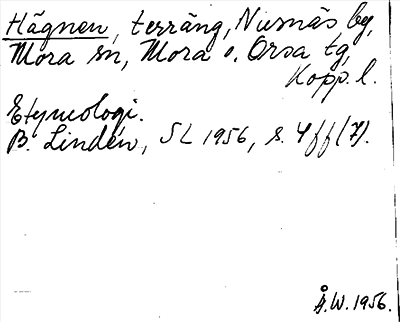 Hägnen, terräng, Nusnäs by,
Mora sn, Mora o. Orsa tg,
Kopp. l.
Etymologi.
B. Lindén, SL 1956, s. 4 ff (7).
Å.W. 1956.